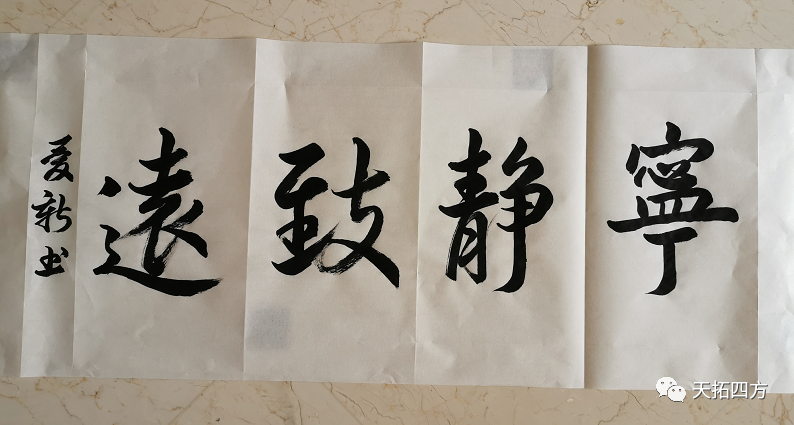 寧静致遠
爱新书
天拓四方